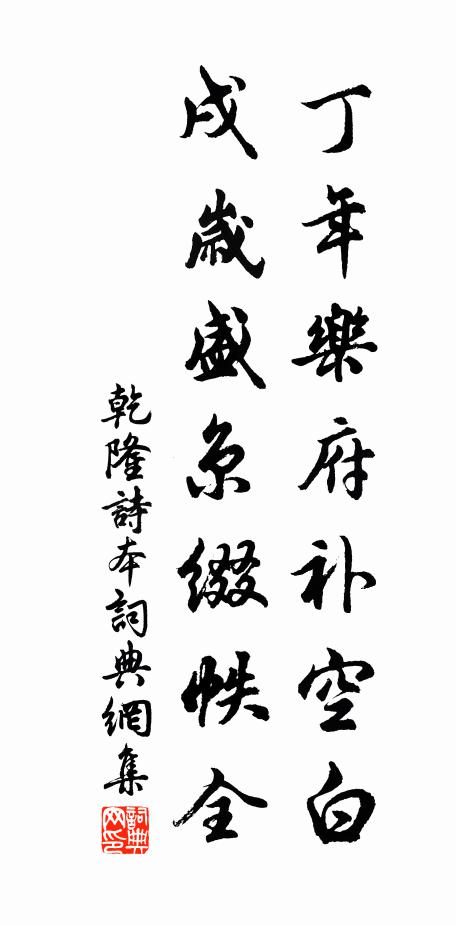 丁年樂府补空白
戌歲盛京綴帙全
乾隆詩本詞典網集
詞典网印